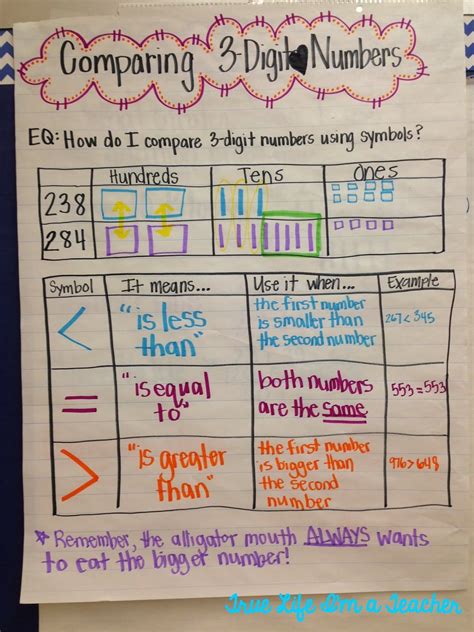 Comparing 3-Digit Numbers
EQ: How do I compare 3-digit numbers using symbols?
Hundreds Tens Ones
238
284
Symbol It means... Use it when... Example
< "is less than" the first number is smaller than the second number 267<345
= "is equal to" both numbers are the same 553=553
> "is greater than" the first number is bigger than the second number 976>648
* Remember, the alligator mouth ALWAYS wants
to eat the bigger number!
True Life I'm a Teacher